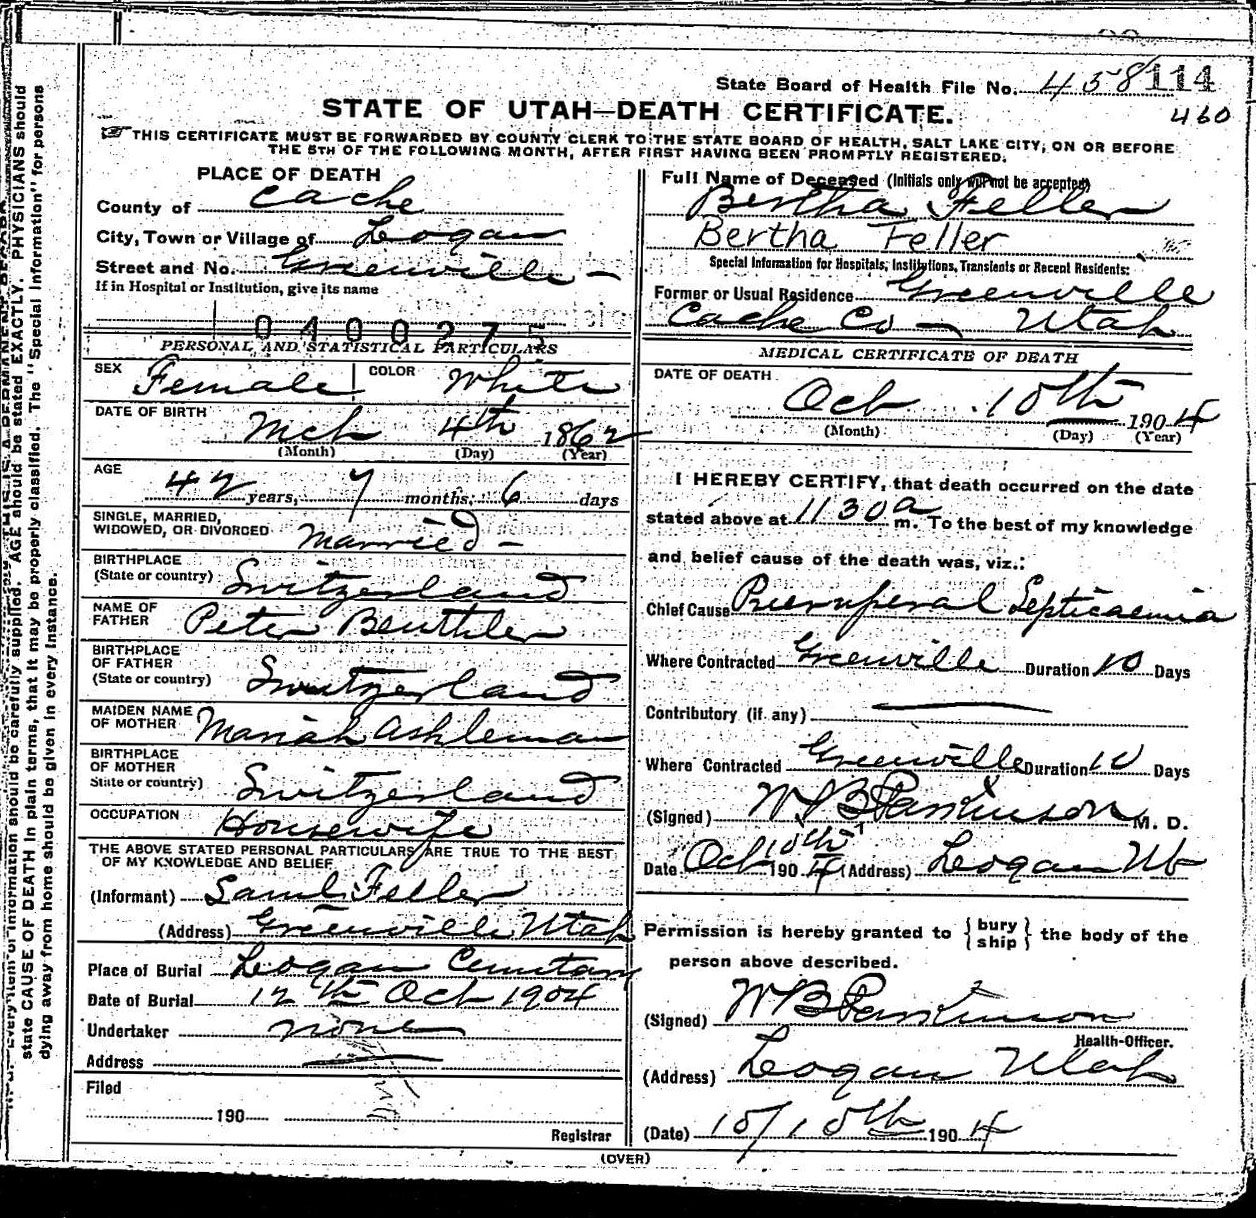 State Board of Health File No. 458 114
460
STATE OF UTAH—DEATH CERTIFICATE.
THIS CERTIFICATE MUST BE FORWARDED BY COUNTY CLERK TO THE STATE BOARD OF HEALTH, SALT LAKE CITY, ON OR BEFORE
THE 5TH OF THE FOLLOWING MONTH, AFTER FIRST HAVING BEEN PROMPTLY REGISTERED.
PLACE OF DEATH
County of Cache
City, Town or Village of Logan
Street and No. Greenville —
If in Hospital or Institution, give its name
0400275
PERSONAL AND STATISTICAL PARTICULARS
SEX Female COLOR White
DATE OF BIRTH
Mch 4th 1862
(Month) (Day) (Year)
AGE
42 years, 7 months, 6 days
SINGLE, MARRIED,
WIDOWED, OR DIVORCED Married —
BIRTHPLACE
(State or country) Switzerland
NAME OF
FATHER Peter Beuthler
BIRTHPLACE
OF FATHER
(State or country) Switzerland
MAIDEN NAME
OF MOTHER Mariah Ashleman
BIRTHPLACE
OF MOTHER
State or country) Switzerland
OCCUPATION Housewife
THE ABOVE STATED PERSONAL PARTICULARS ARE TRUE TO THE BEST
OF MY KNOWLEDGE AND BELIEF
(Informant) Saml Feller
(Address) Greenville Utah
Place of Burial Logan Cemetary
Date of Burial 12th Oct 1904
Undertaker none
Address
Filed
190
Registrar
Full Name of Deceased (Initials only will not be accepted)
Bertha Feller
Bertha Feller
Special Information for Hospitals, Institutions, Transients or Recent Residents:
Former or Usual Residence Greenville
Cache Co — Utah
MEDICAL CERTIFICATE OF DEATH
DATE OF DEATH
Oct 10th 1904
(Month) (Day) (Year)
I HEREBY CERTIFY, that death occurred on the date
stated above at 11 30 a m. To the best of my knowledge
and belief cause of the death was, viz.:
Chief Cause Pueruperal Septicaemia
Where Contracted Greenville Duration 10 Days
Contributory (if any) —
Where Contracted Greenville Duration 10 Days
(Signed) W B Parkinson M. D.
Date Oct 10th 1904 (Address) Logan Ut
Permission is hereby granted to { bury ship } the body of the
person above described.
(Signed) W B Parkinson
Health-Officer.
(Address) Logan Utah
(Date) 10/10th 1904
(OVER)
state CAUSE OF DEATH in plain terms, that it may be properly classified. The "Special Information" for persons
dying away from home should be given in every instance.
Every item of information should be carefully supplied. AGE should be stated EXACTLY. PHYSICIANS should